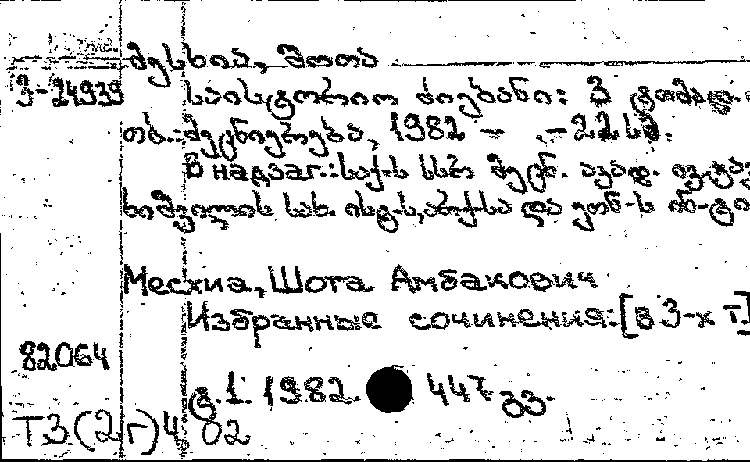 მესხია, შოთა
3-24939 საისტორიო ძიებანი: 3 ტომად.
თბ.: მეცნიერება, 1982 — . — 22 სმ.
В надзаг.: საქ. სსრ მეცნ. აკად. ივ. ჯავა
ხიშვილის სახ. ისტ-ს, არქ-სა და ეთნ-ს ინ-ტი
Месхиа, Шота Амбакович
Избранные сочинения: [в 3-х т.]
82064
ტ. 1. 1982. 447 გვ.
Т3(2Г)4 02